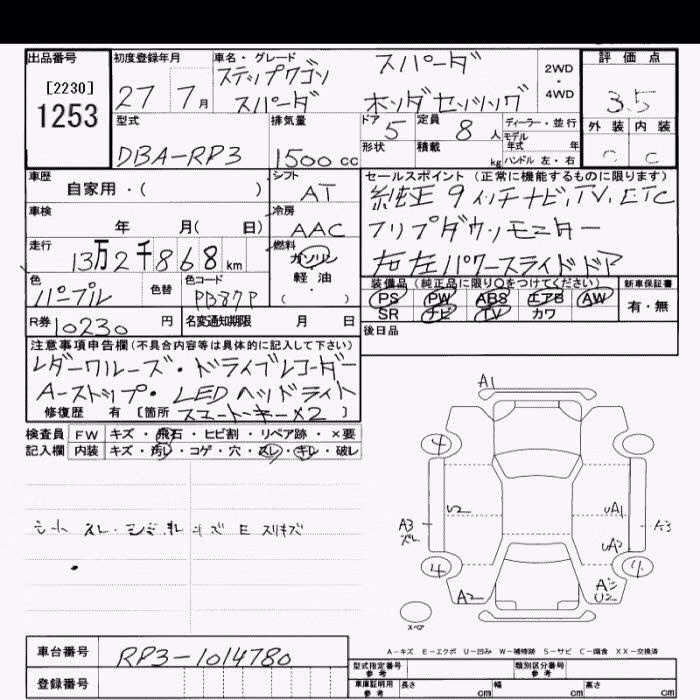 出品番号
[2230]
1253
初度登録年月
27 7月
車名・グレード
ステップワゴン スパーダ
スパーダ ホンダセンシング
2WD
・
4WD
評価点
3.5
外装 内装
C C
型式
DBA-RP3
排気量
1500cc
ドア
5
定員
8人
形状
積載
kg
ディーラー・並行
モデル
年式 年
ハンドル 左・右
車歴
自家用・( )
シフト
AT
車検
年 月( 日)
冷房
AAC
走行
13万2千868km
燃料
ガソリン
・
軽油
・
( )
色
パープル
色替
色コード
PB87P
R券
10230円
名変通知期限 月 日
セールスポイント (正常に機能するものに限ります)
純正9インチナビ,TV,ETC
フリップダウンモニター
右左パワースライドドア
装備品(純正品に限り○をつけてください)
PS PW ABS エアB AW
SR ナビ TV カワ
新車保証書
有・無
後日品
注意事項申告欄(不具合内容等は具体的に記入して下さい)
レダークルーズ・ドライブレコーダー
A-ストップ・LEDヘッドライト
修復歴 有 [箇所 スマートキー×2 ]
検査員 FW キズ・飛石・ヒビ割・リペア跡・×要
記入欄 内装 キズ・汚レ・コゲ・穴・スレ・キレ・破レ
シート スレ・シミ キズ E スリキズ
A1
4
U2
UA1
A3
スレ
A3
UA2
4
4
A2
U2
スペア
A-キズ E-エクボ U-凹み W-補修跡 S-サビ C-腐食 XX-交換済
車台番号
RP3-1014780
登録番号
型式指定番号
参考
類別区分番号
参考
車庫証明用
参考
長さ cm 幅 cm 高さ cm